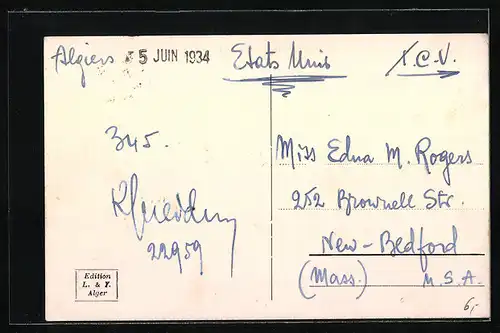 Algiers 5 JUIN 1934
Etats Unis
T.C.V.
345.
22959
Miss Edna M. Rogers
252 Brownell Str.
New-Bedford
(Mass.) U.S.A.
Edition
L. & Y.
Alger
6,-